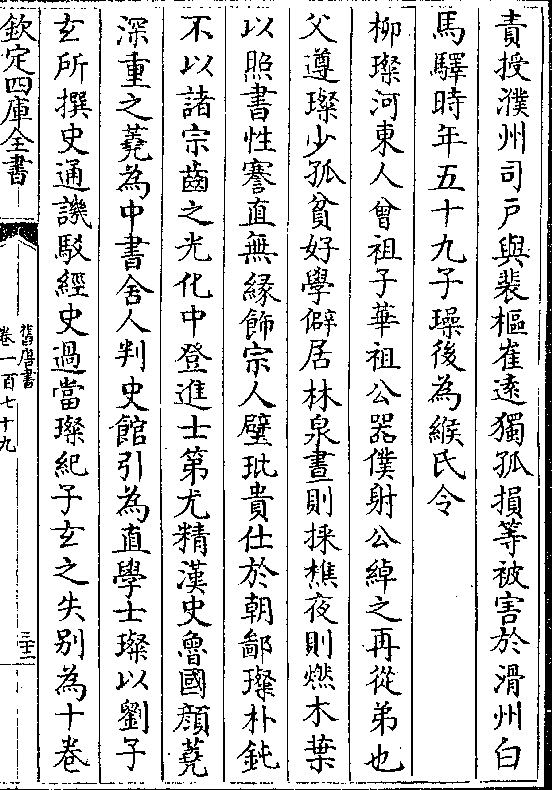 責授濮州司戸與裴樞崔逺獨孤損等被害於滑州白
馬驛時年五十九子璪後為緱氏令
柳璨河東人曾祖子華祖公器僕射公綽之再從弟也
父遵璨少孤貧好學僻居林泉晝則採樵夜則燃木葉
以照書性謇直無緣飾宗人壁玭貴仕於朝鄙璨朴鈍
不以諸宗齒之光化中登進士第尤精漢史魯國顔蕘
深重之蕘為中書舍人判史館引為直學士璨以劉子
玄所撰史通譏駁經史過當璨紀子玄之失别為十卷
欽定四庫全書
舊唐書
卷一百七十九
三十二